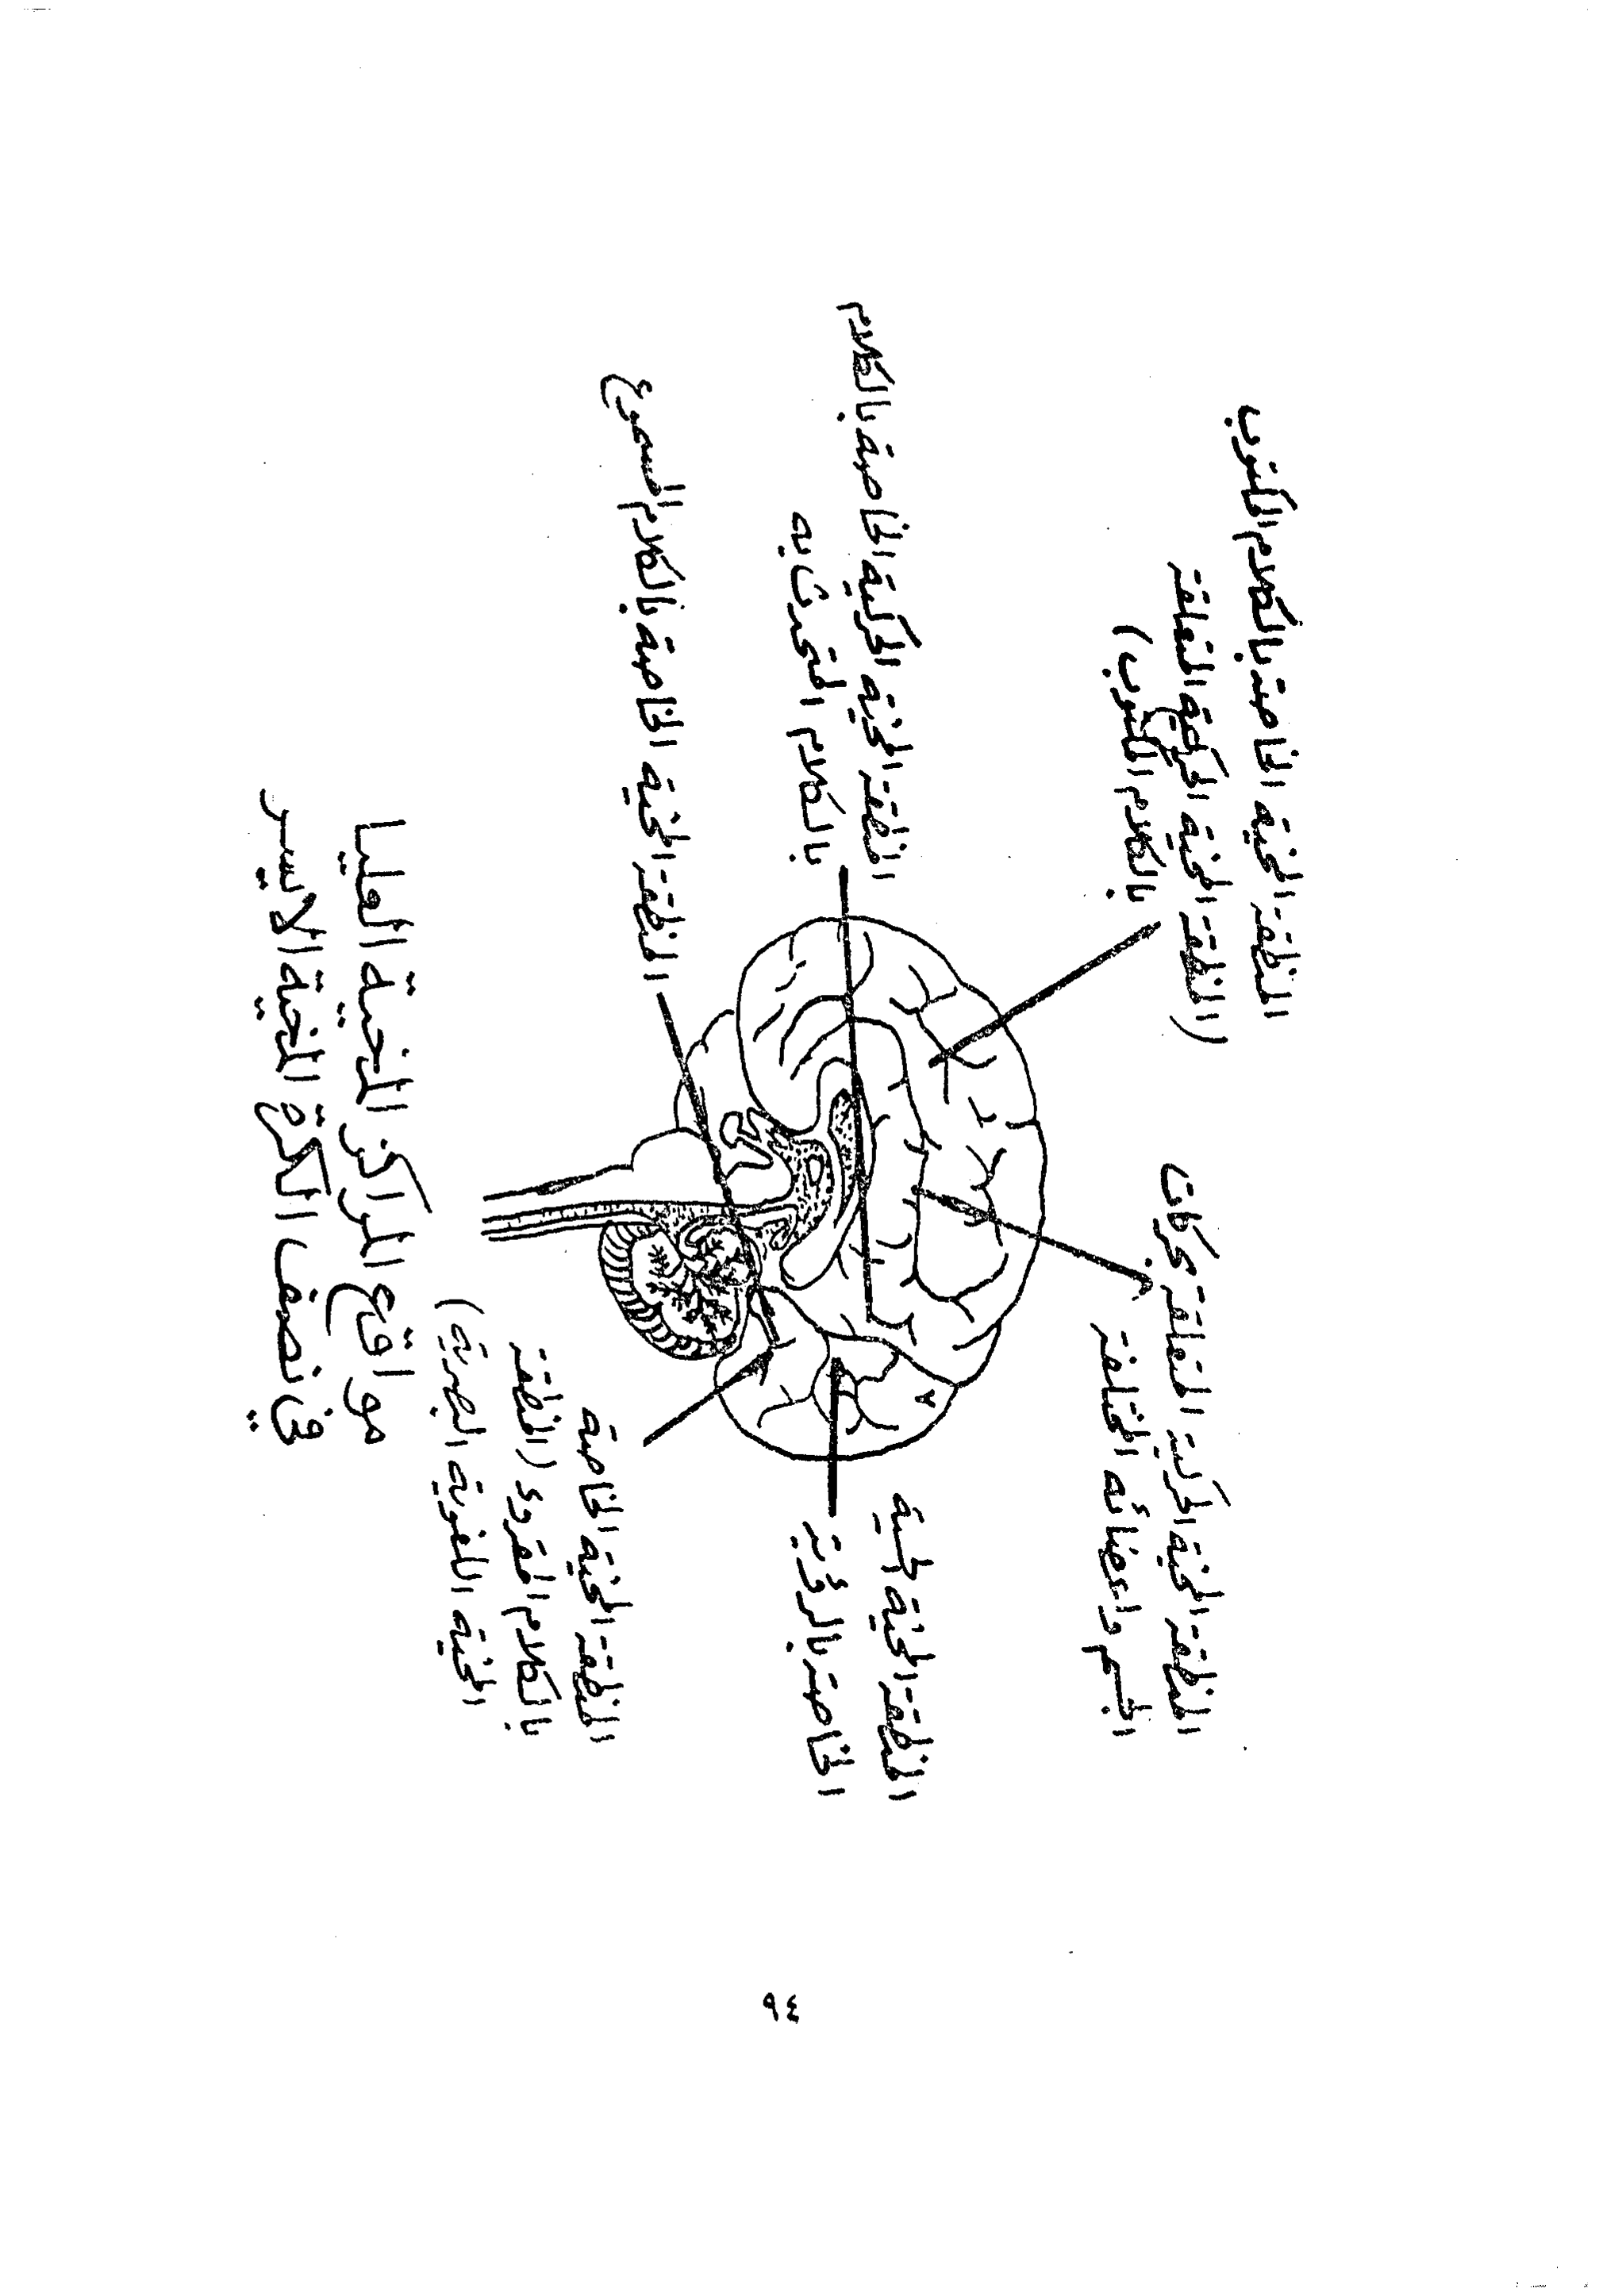 المنطقة المخية الخاصة بالكلام المكتوب
(المنطقة المخية الحركية المتعلقة
بالكلام المكتوب)
المنطقة المخية الحركية المتعلقة بحركات
الجسم واعضائه المختلفة
المنطقة المخية الحركية الخاصة بالكلام
بالكلام المتحدث به
المنطقة المخية الحسية
الخاصة بالرؤية
المنطقة المخية الخاصة بالكلام المسموع
المنطقة المخية الخاصة
بالكلام المقروء (المنطقة
المخية اللغوية البصرية)
مواقع المراكز المخية العليا
في نصف الكرة المخية الايسر
٩٤